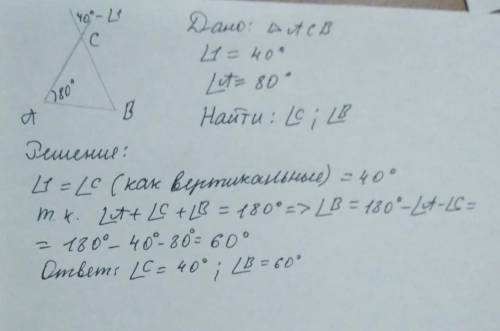 40° - ∠1
C
80°
A
B
Дано: ▷ АСВ
∠1 = 40°
∠А = 80°
Найти: ∠С ; ∠В
Решение:
∠1 = ∠С (как вертикальные) = 40°
т.к. ∠А + ∠С + ∠В = 180° => ∠В = 180° - ∠А - ∠С =
= 180° - 40° - 80° = 60°
Ответ: ∠С = 40° ; ∠В = 60°